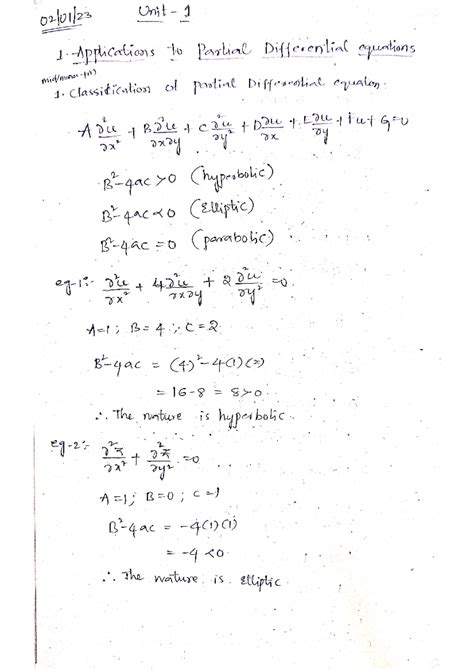 02/01/23
Unit - 1
1. Applications to Partial Differential equations
1. Classification of partial Differential equation.
A ∂²u/∂x² + B ∂²u/∂x∂y + C ∂²u/∂y² + D ∂u/∂x + E ∂u/∂y + Fu + G = 0
B²-4ac > 0 (hyperbolic)
B²-4ac < 0 (Elliptic)
B²-4ac = 0 (parabolic)
eg-1:- ∂²u/∂x² + 4 ∂²u/∂x∂y + 2 ∂²u/∂y² = 0
A=1 ; B=4 ; C=2
B²-4ac = (4)²-4(1)(2)
= 16-8 = 8>0
∴ The nature is hyperbolic
eg-2:- ∂²z/∂x² + ∂²z/∂y² = 0
A=1; B=0; C=1
B²-4ac = -4(1)(1)
= -4 <0
∴ The nature is Elliptic